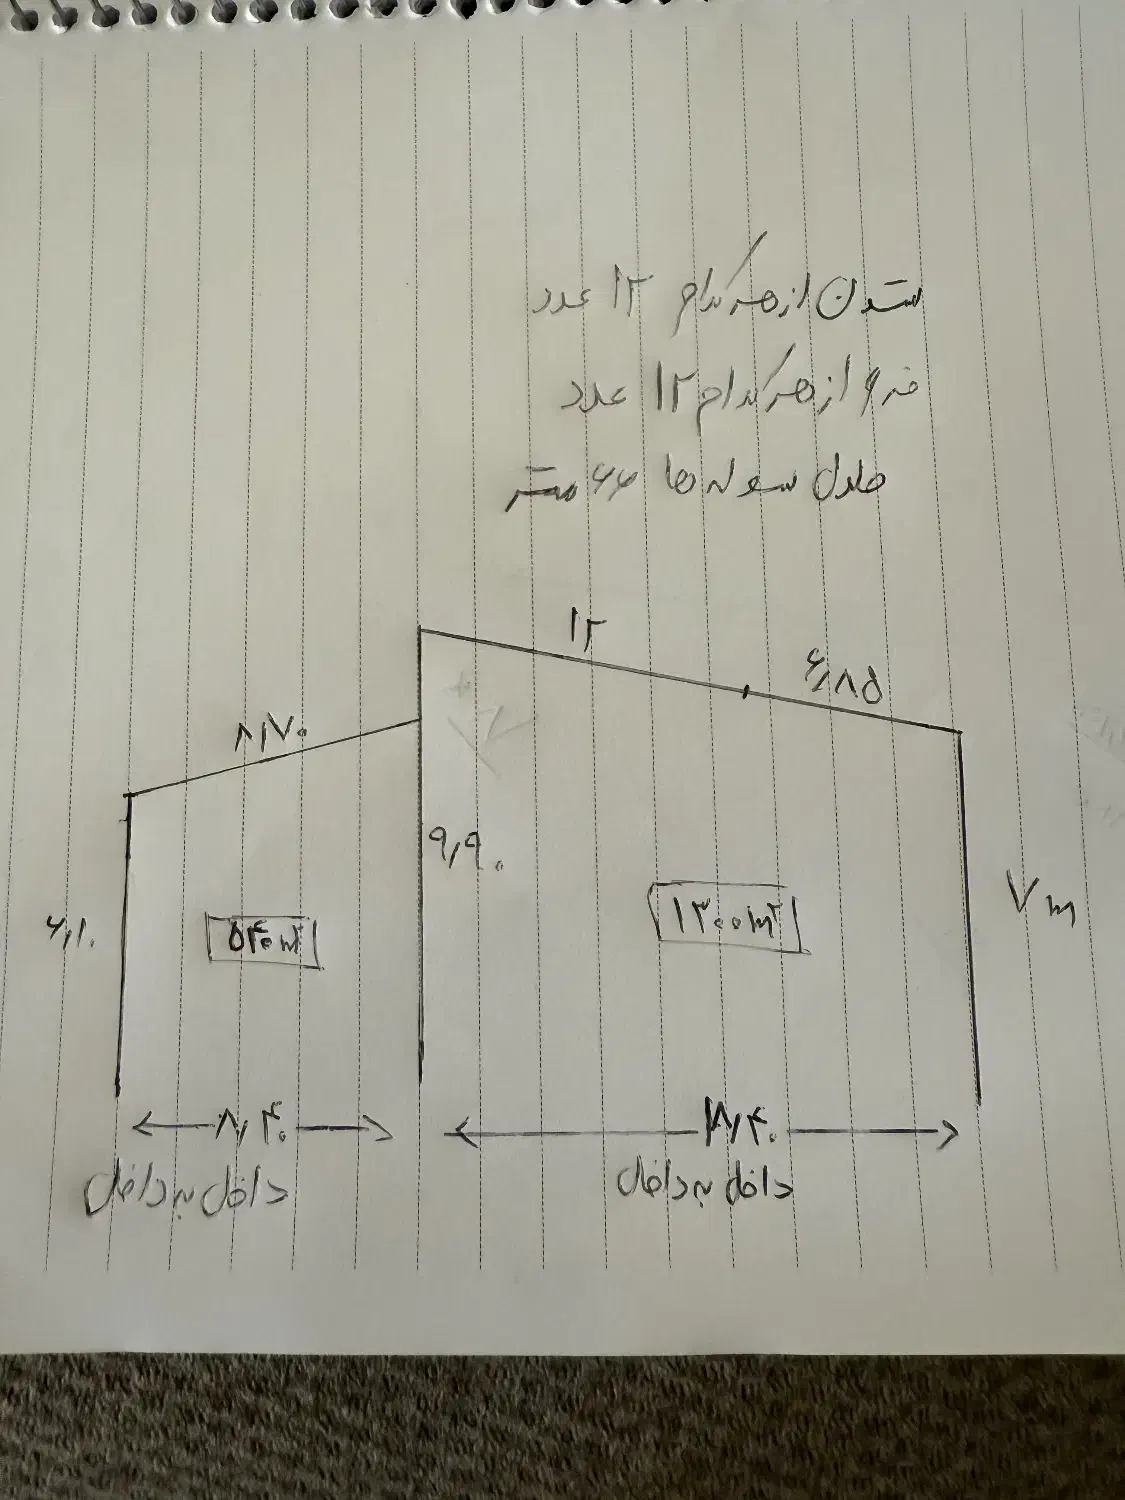 ستون از هر کدام ۱۲ عدد
خرو از هر کدام ۱۲ عدد
طول سوله ها ۶۶ متر
۱۲
۶٫۸۵
۸٫۷۰
۹٫۹۰
۷m
۶٫۱۰
۵۴۰m²
۱۳۰۰m²
۸٫۴۰
۱۸٫۴۰
داخل به داخل
داخل به داخل